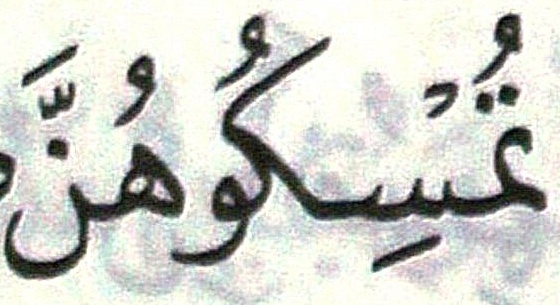 تُمْسِكُوهُنَّ